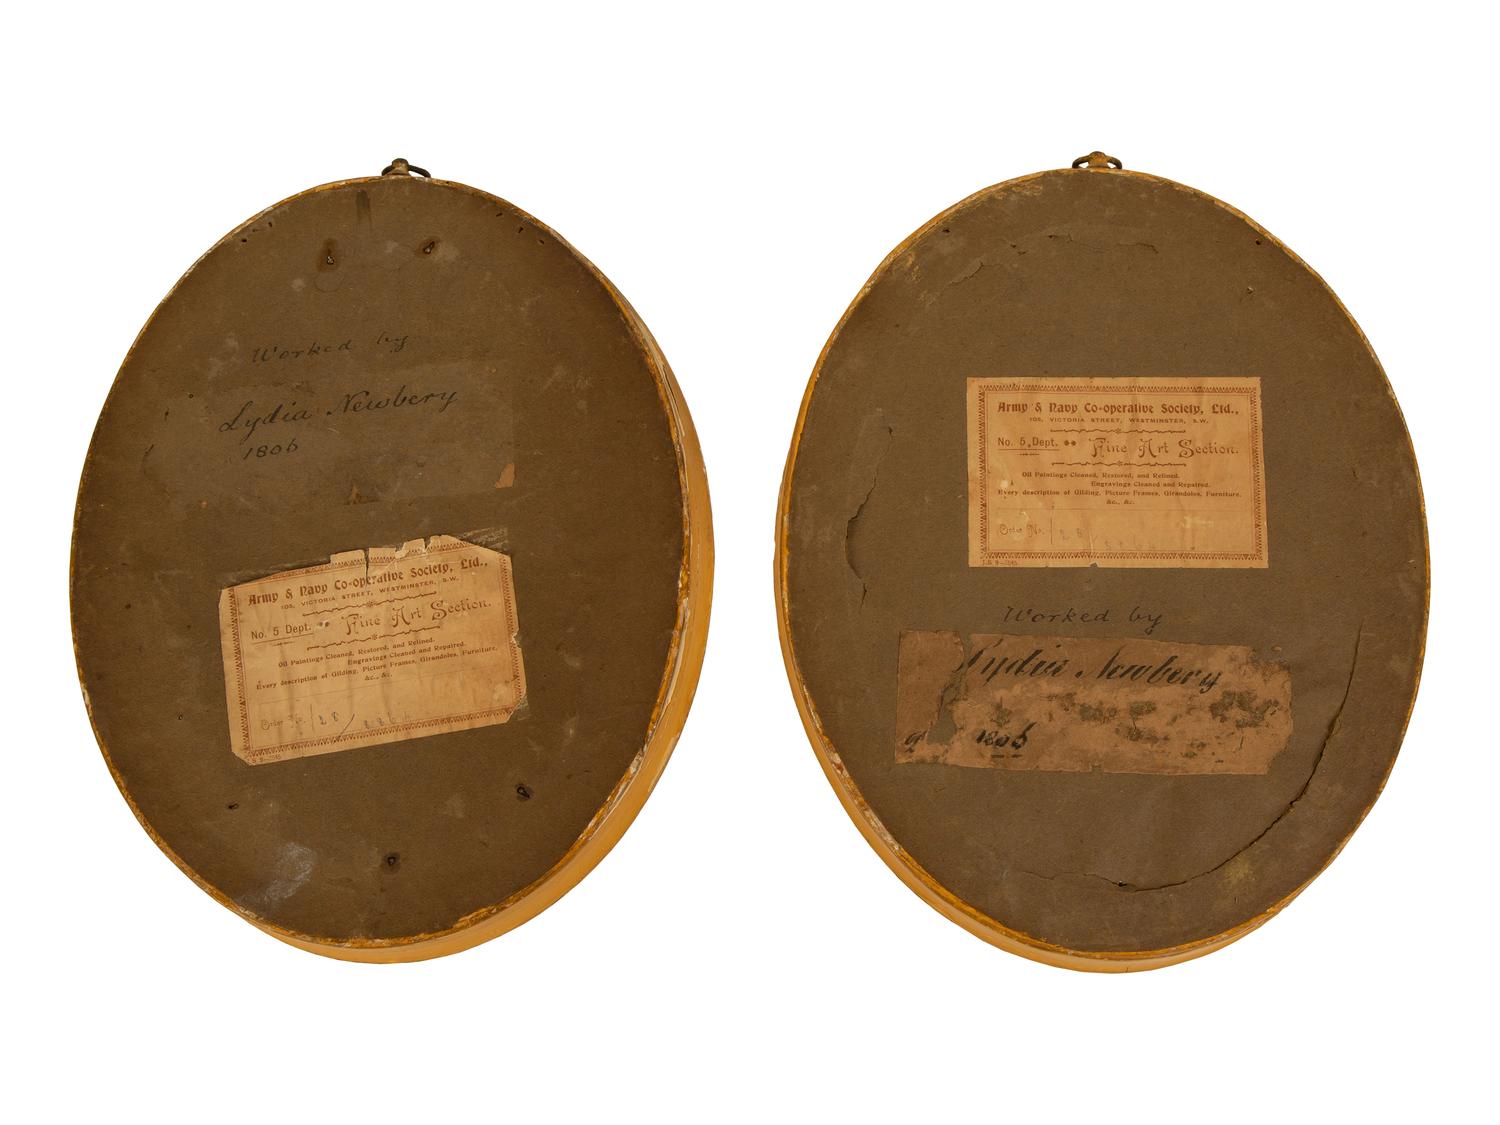 Worked by
Lydia Newbery
1806
Army & Navy Co-operative Society, Ltd.,
105, VICTORIA STREET, WESTMINSTER, S.W.
No. 5 Dept. Fine Art Section.
Oil Paintings Cleaned, Restored, and Relined.
Engravings Cleaned and Repaired.
Every description of Gilding, Picture Frames, Girandoles, Furniture,
&c., &c.
Order No. 28
Army & Navy Co-operative Society, Ltd.,
105, VICTORIA STREET, WESTMINSTER, S.W.
No. 5, Dept. Fine Art Section.
Oil Paintings Cleaned, Restored, and Relined.
Engravings Cleaned and Repaired.
Every description of Gilding, Picture Frames, Girandoles, Furniture,
&c., &c.
Order No.
Worked by
Lydia Newbery
1806